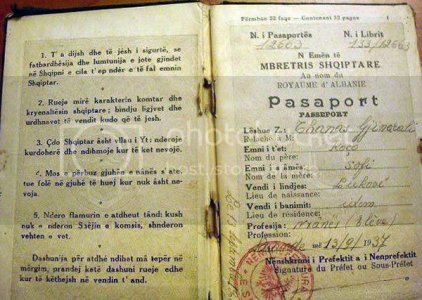 1. T'a dijsh dhe të jesh i sigurtë, se
fatbardhësija dhe lumtunija e jote gjindet
në Shqipni e cila t'ep ndër e të fal emnin
Shqiptar.
2. Rueje mirë karakterin komtar dhe
kryenaltësin shqiptare; bindju ligjvet dhe
urdhnavet të vendit kudo që të jesh.
3. Çdo Shqiptar âsht vllau i Yt: nderoje
kurdoherë dhe ndihmoje kur të ket nevojë.
4. Mos e përbuz gjuhën e nânës s'ate,
tue folë në gjuhë të huej kur nuk âsht ne-
voja.
5. Ndero flamurin e atdheut tând: kush
nuk e nderon Stêjin e komsis, shnderon
vehten e vet.
Dashunija për atdhé ndihet mâ tepër në
mërgim, prandej ketë dashuni rueje edhe
kur të këthejsh në vendin t'and.
Përmban 32 faqe - Contenant 32 pages
1
N. i Pasaportës
N. i Librit
N Emën të
MBRETRIS SHQIPTARE
Au nom du
ROYAUME D'ALBANIE
Pasaport
PASSEPORT
Lëshue Z.: Thanas
Relaché à M:
Emni i t'et:
Nom du père:
Emni i s âmës: Sofi
Nom de la mère:
Vendi i lindjes:
Lieu de naissance:
Vendi i banimit:
Lieu de résidence:
Profesija:
Profession:
më 13/9/1937
Nënshkrimi i Prefektit a i Nenprefektit
Signature du Préfet ou Sous-Préfet
photobucket